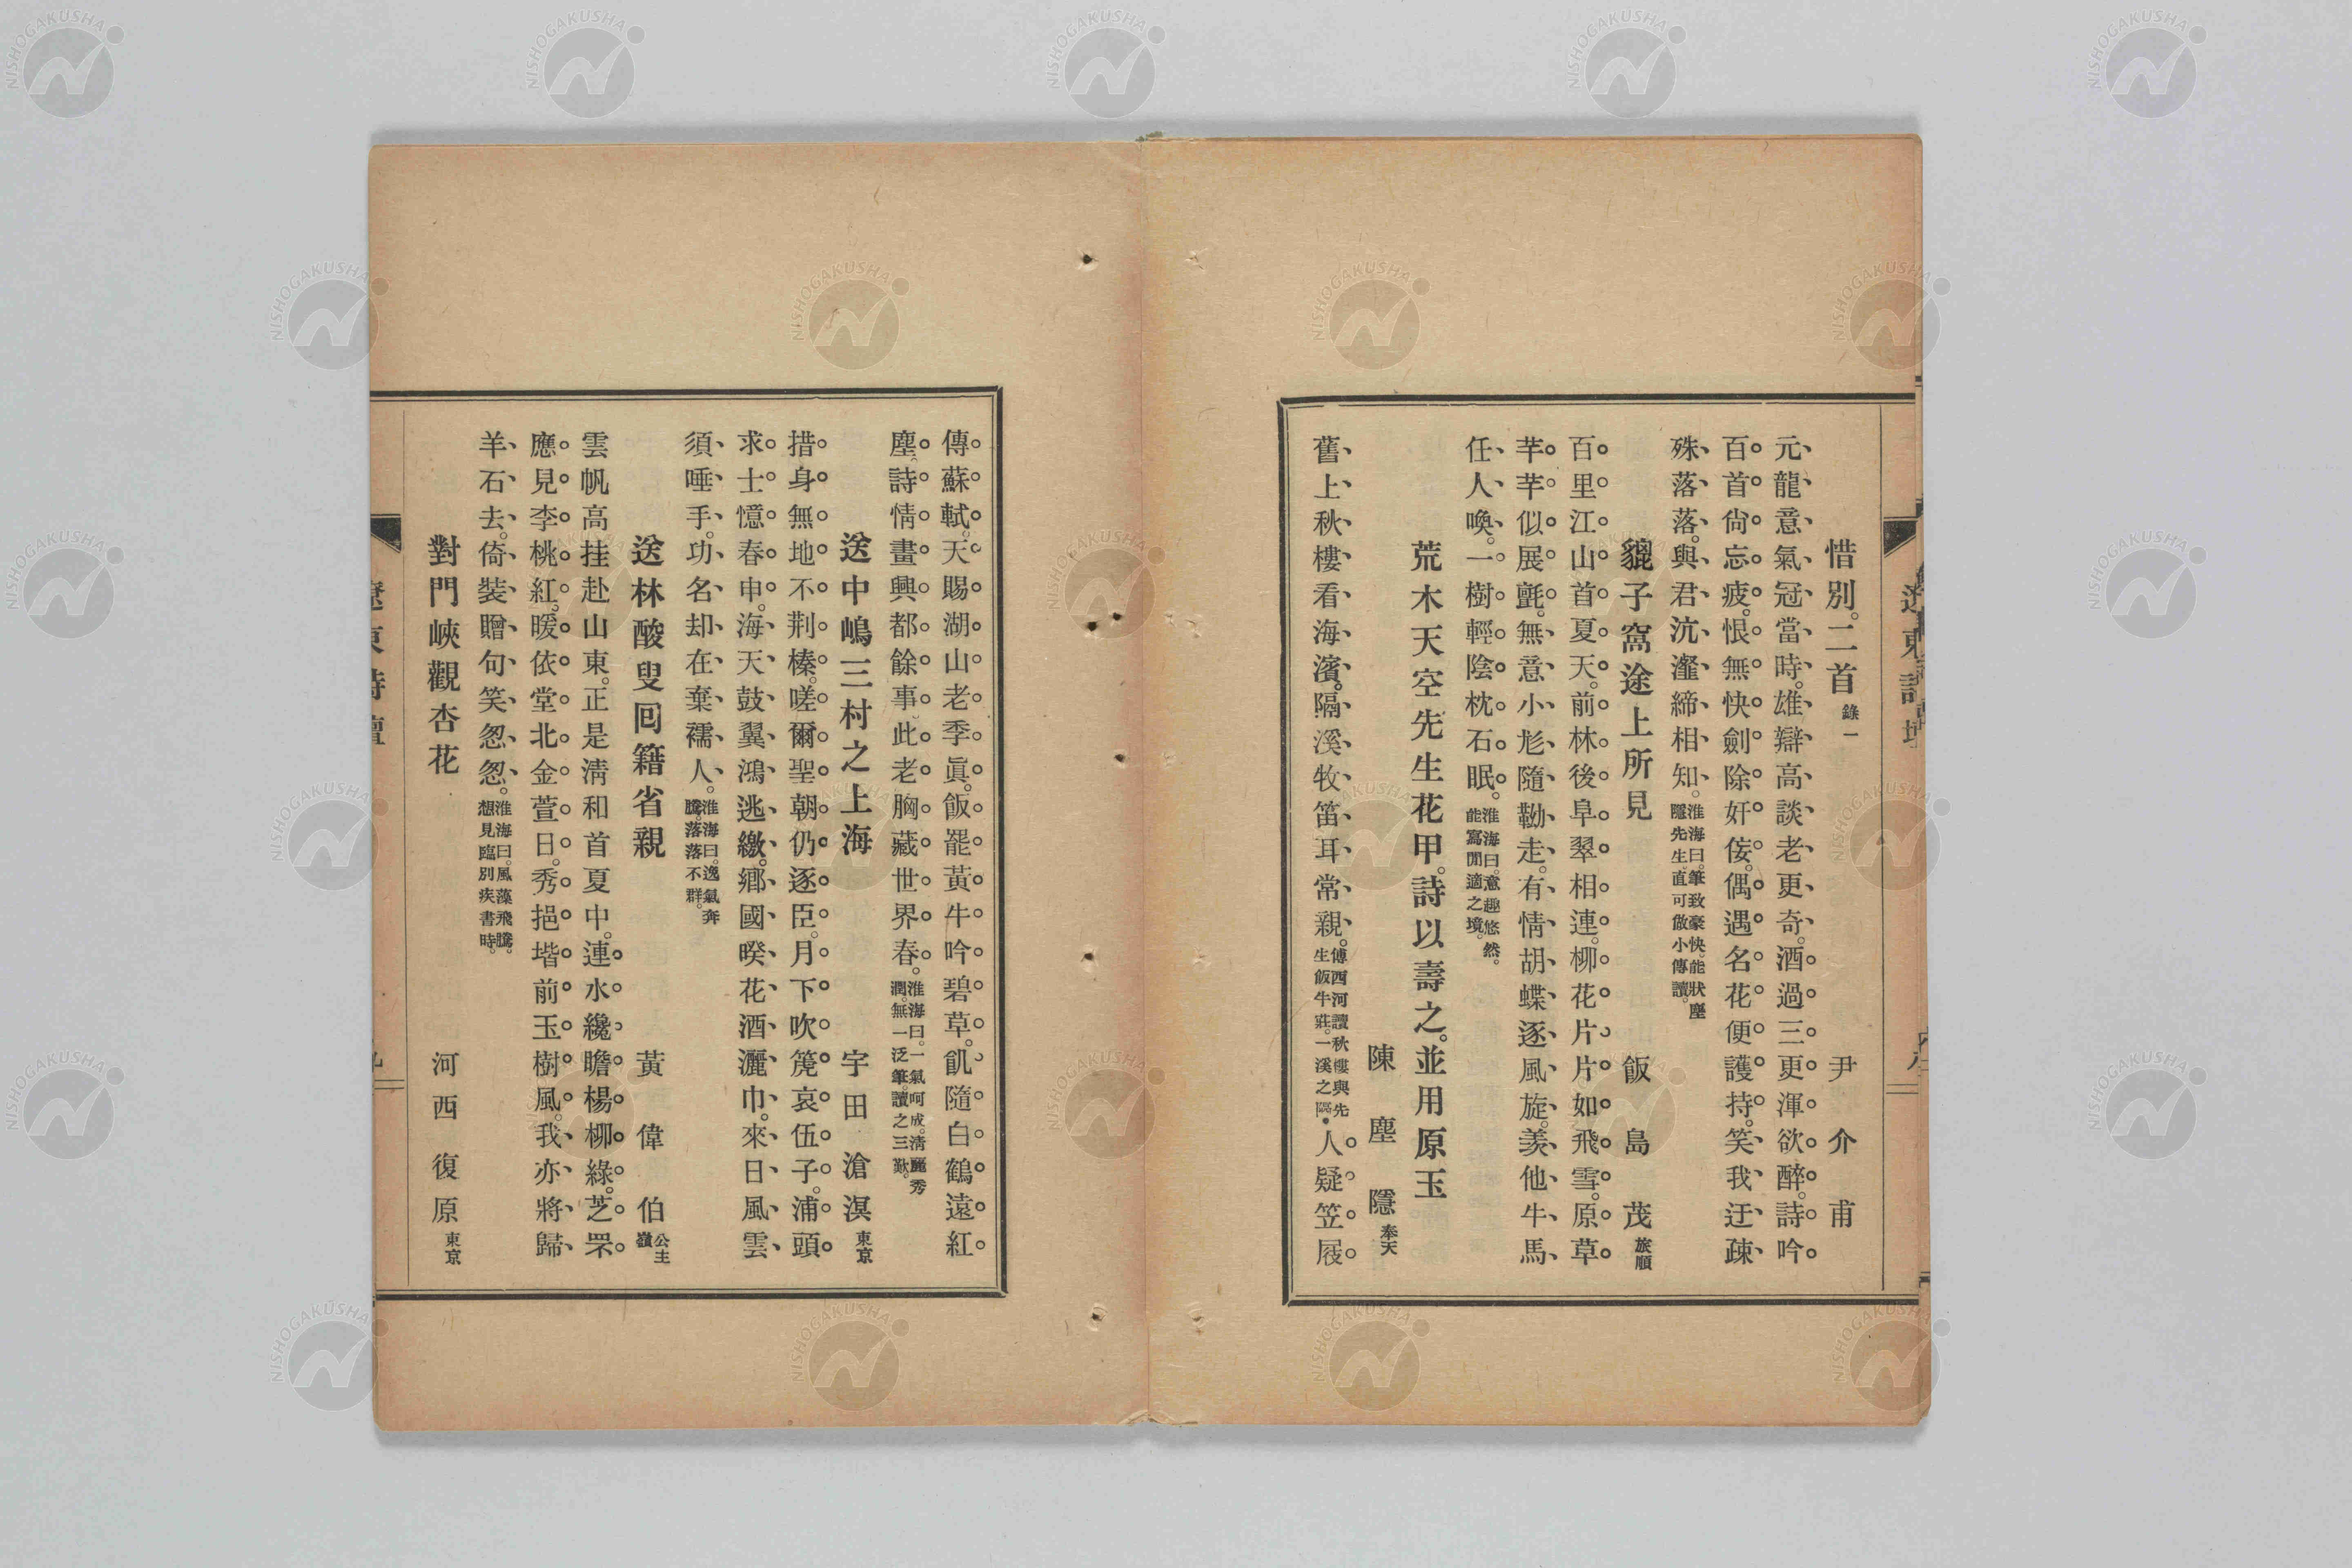 惜別。二首 錄一 尹介甫
元龍意氣冠當時。雄辯高談老更奇。酒過三更渾欲醉。詩吟
百首尙忘疲。恨無快劍除奸佞。偶遇名花便護持。笑我迂疎
殊落落。與君沆瀣締相知。淮海曰。筆致豪快。能狀塵隱先生。直可倣小傳讀。
貔子窩途上所見 飯島茂 旅順
百里江山首夏天。前林後阜翠相連。柳花片片如飛雪。原草
芊芊似展氈。無意小尨隨靮走。有情胡蝶逐風旋。羨他牛馬
任人喚。一樹輕陰枕石眠。淮海曰。意趣悠然。能寫閒適之境。
荒木天空先生花甲。詩以壽之。並用原玉
陳塵隱 奉天
舊上秋樓看海濱。隔溪牧笛耳常親。傅西河讀秋樓與先生飯牛莊。一溪之隔。人疑笠屐
傳蘇軾。天賜湖山老季眞。飯罷黃牛吟碧草。飢隨白鶴遠紅
塵。詩情畫興都餘事。此老胸藏世界春。淮海曰。一氣呵成。淸麗秀潤。無一泛筆。讀之三歎。
送中嶋三村之上海 宇田滄溟 東京
措身無地不荆榛。嗟爾聖朝仍逐臣。月下吹箎哀伍子。浦頭
求士憶春申。海天鼓翼鴻逃繳。鄕國睽花酒灑巾。來日風雲
須唾手。功名却在棄襦人。淮海曰。逸氣奔騰。落落不群。
送林酸叟回籍省親 黃偉伯 公主嶺
雲帆高挂赴山東。正是淸和首夏中。連水纔瞻楊柳綠。芝罘
應見李桃紅。暖依堂北金萱日。秀挹堦前玉樹風。我亦將歸
羊石去。倚裝贈句笑怱怱。淮海曰。風藻飛騰。想見臨別疾書時。
對門峽觀杏花 河西復原 東京